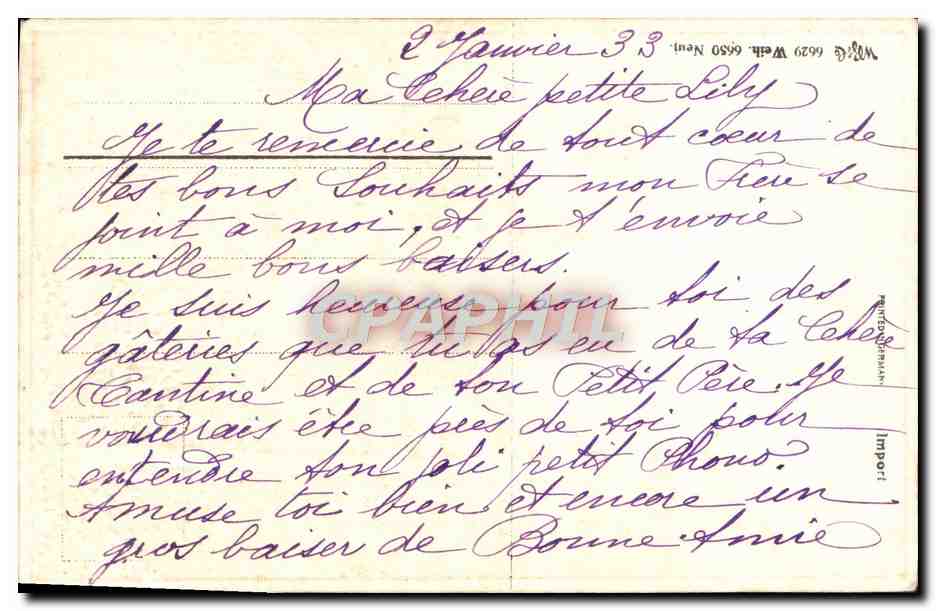 2 Janvier 33
Ma Chère petite Lily
Je te remercie de tout cœur de
tes bons Souhaits mon Frère se
joint à moi, et je t'envoie
mille bons baisers.
Je suis heureuse pour toi des
gâteries que tu as eu de ta Chère
Tantine et de ton Petit Père. Je
voudrais être près de toi pour
entendre ton joli petit Phono.
Amuse toi bien et encore un
gros baiser de Bonne Amie
6629 Weih. 6650 Neuj.
PRINTED GERMANY
Import
CPAPHIL